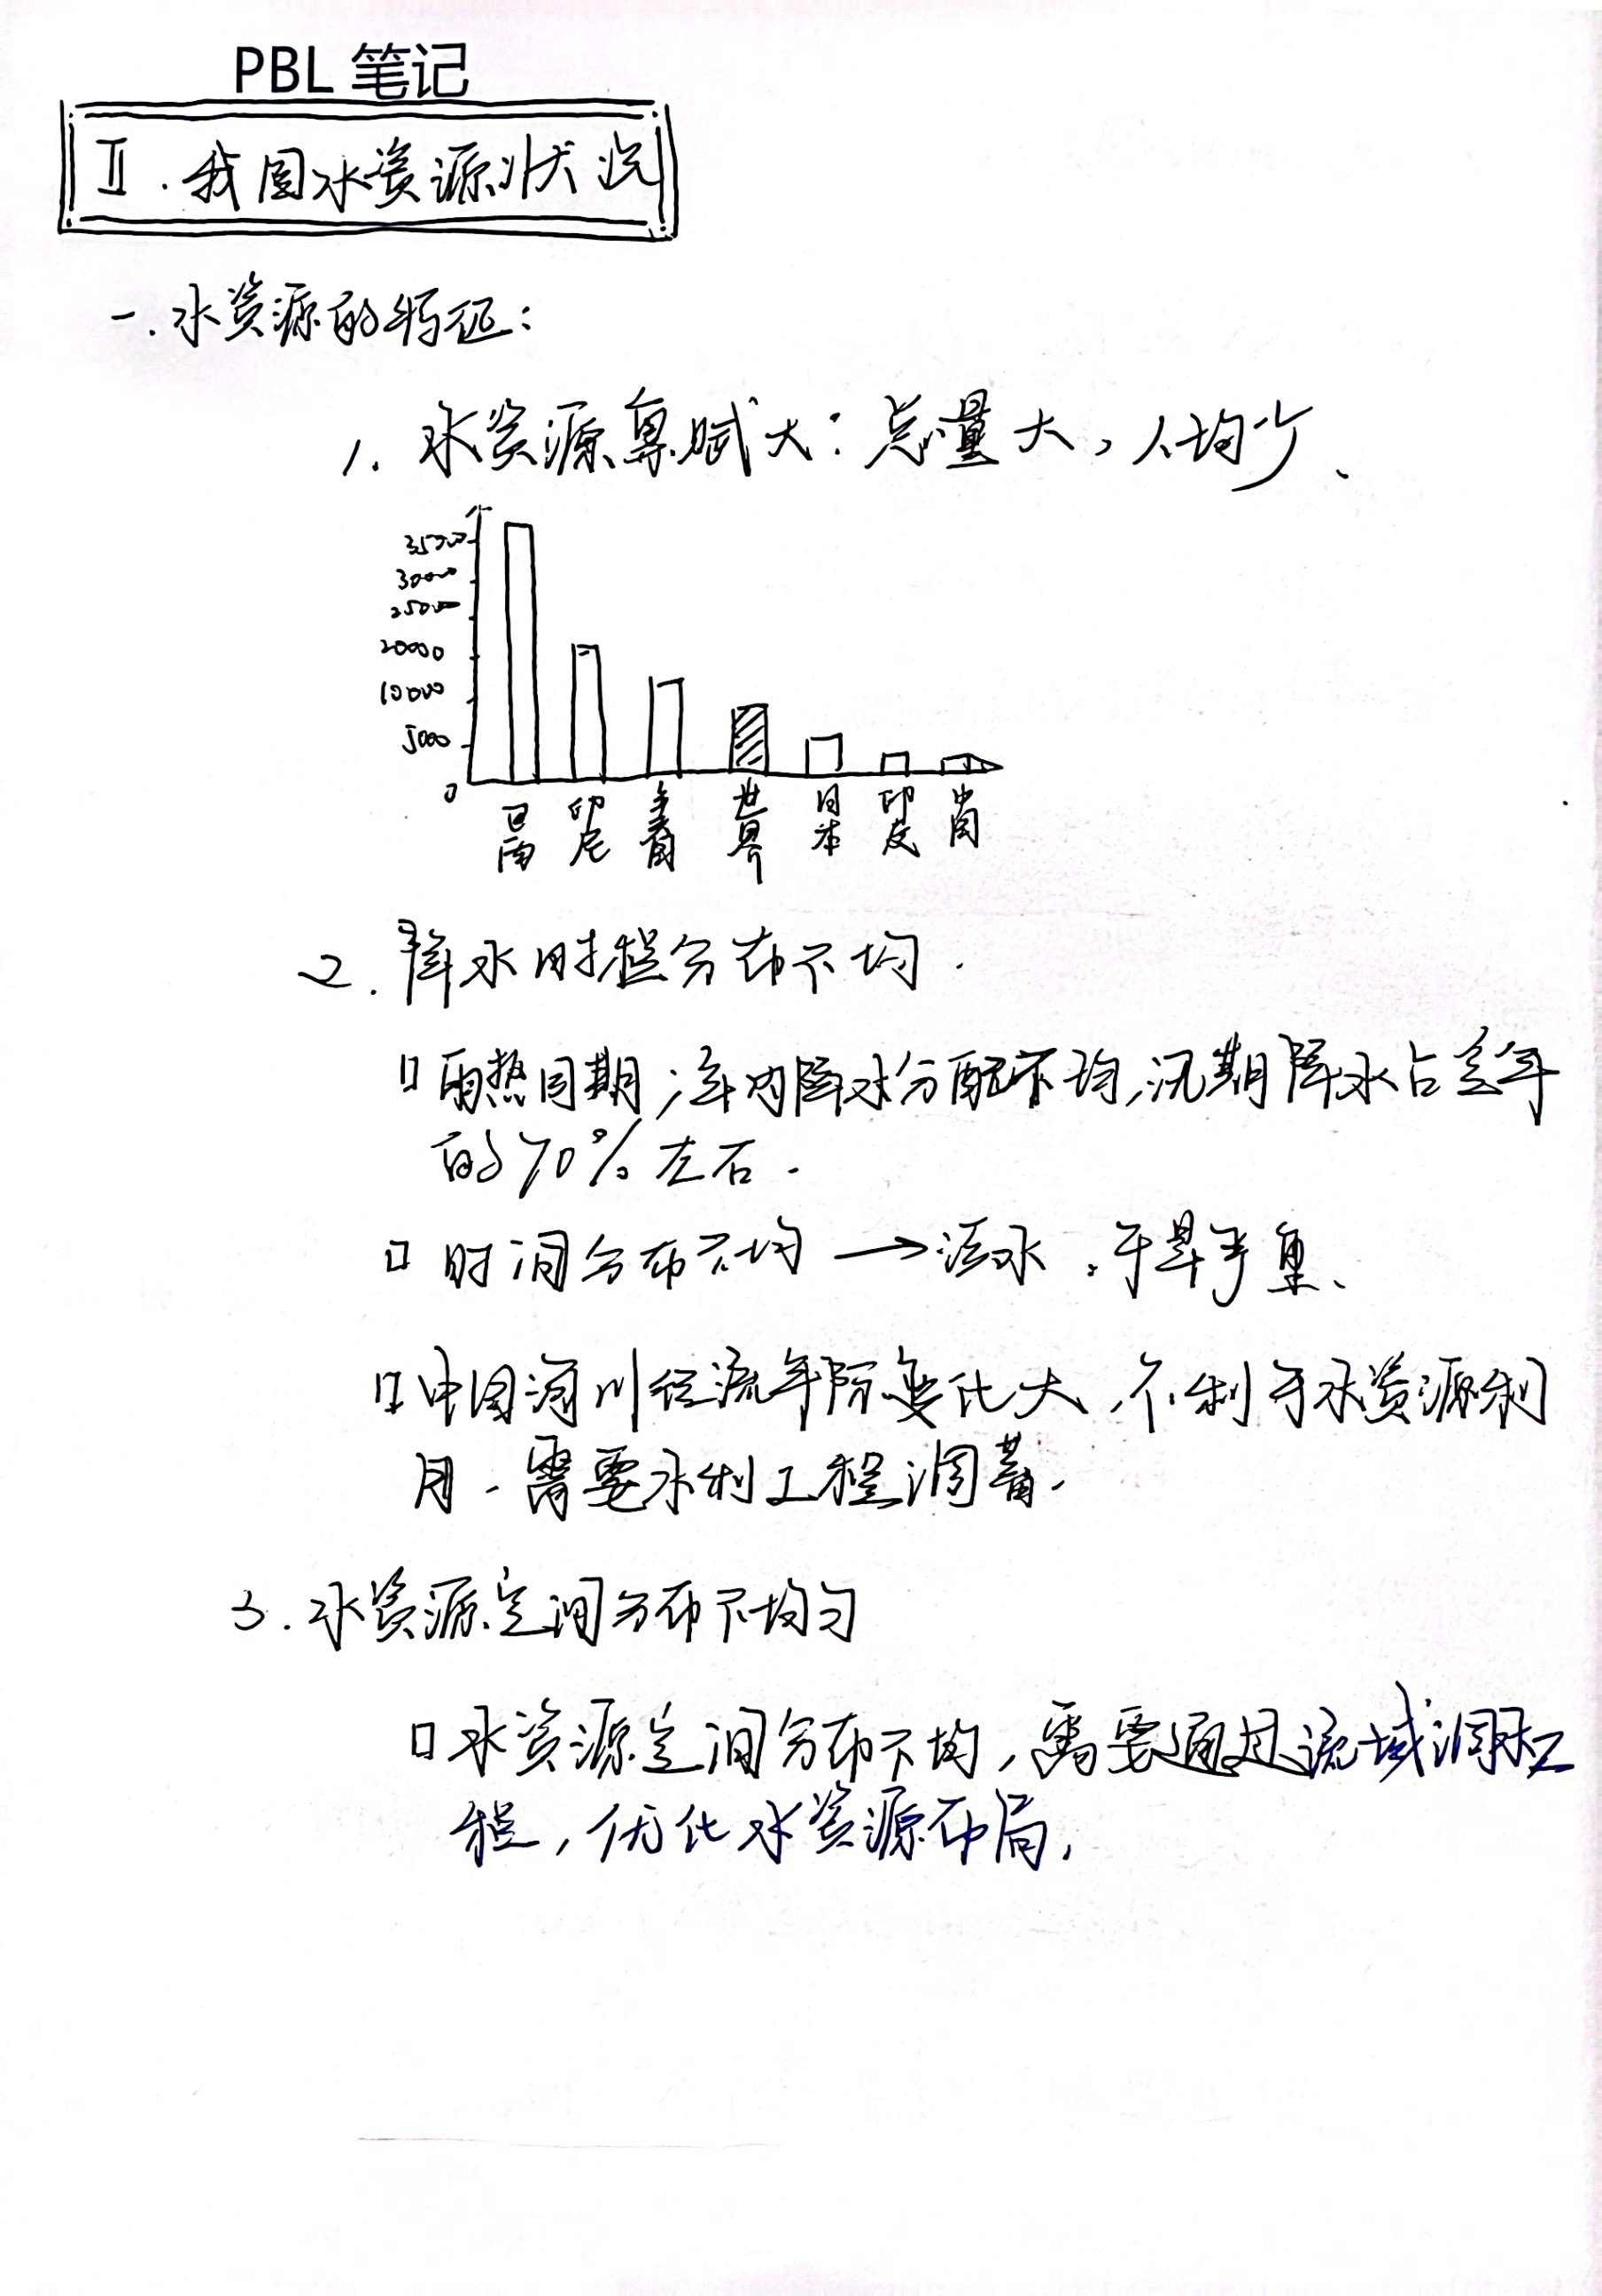 PBL 笔记
Ⅱ.我国水资源状况
一.水资源的特征:
1. 水资源禀赋大:总量大,人均少、
35000
30000
25000
20000
10000
5000
0
巴西
印尼
美国
世界
日本
印度
中国
2.降水时程分布不均.
口雨热同期;年内降水分配不均,汛期降水占全年
的70%左右.
口 时间分布不均 →洪水,干旱严重、
口中国河川径流年际变化大,不利于水资源利
用.需要水利工程调蓄.
3.水资源空间分布不均匀
口水资源空间分布不均,需要通过流域调水工
程,优化水资源布局,